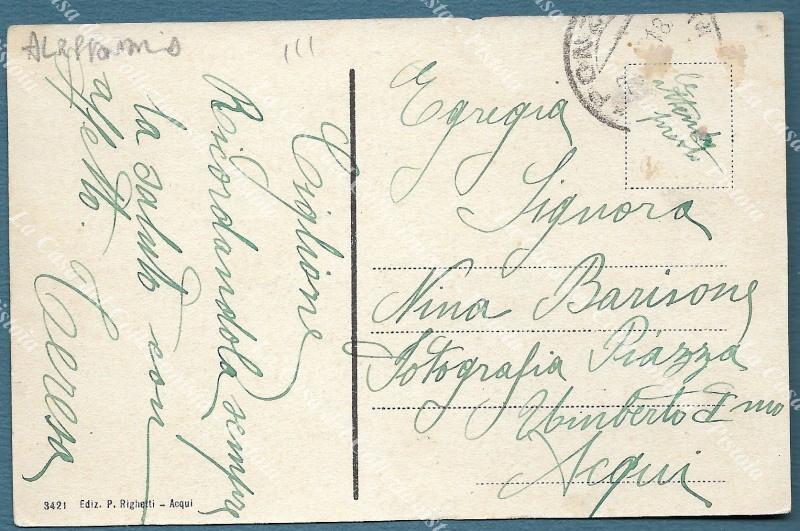 ALESSANDRIA
Ciglione
Ricordandola sempre
la saluto con
affetto.
Teresa
Egregia
Signora
Nina Barisone
Fotografia Piazza
Umberto I mo
Acqui
3421 Ediz. P. Righetti - Acqui